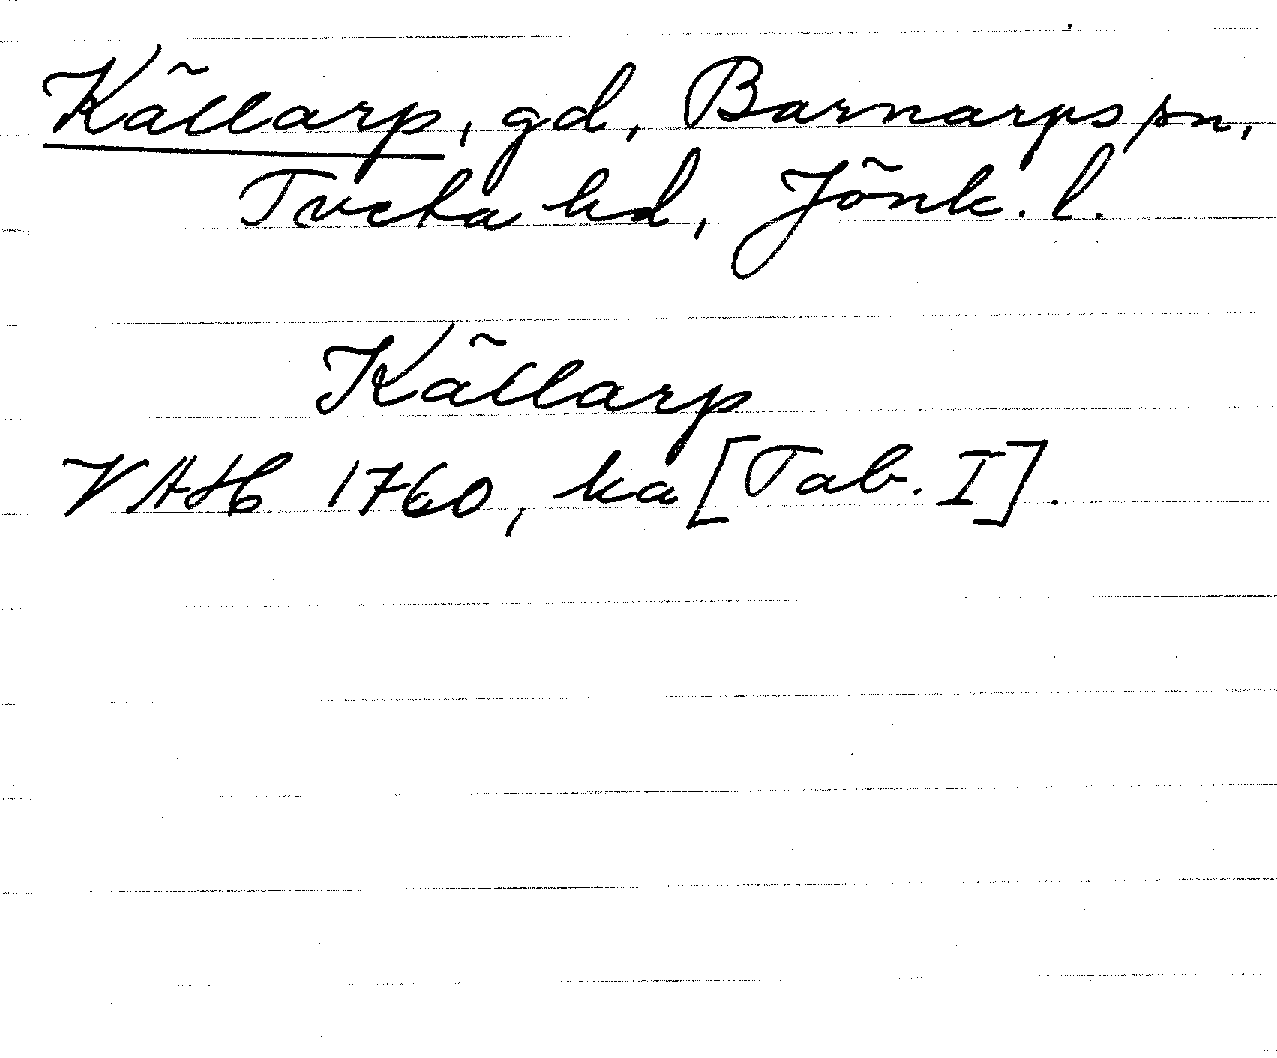 Källarp, gd, Barnarps sn,
Tveta hd, Jönk. l.
Källarp
VAH 1760, ka [Tab. I].